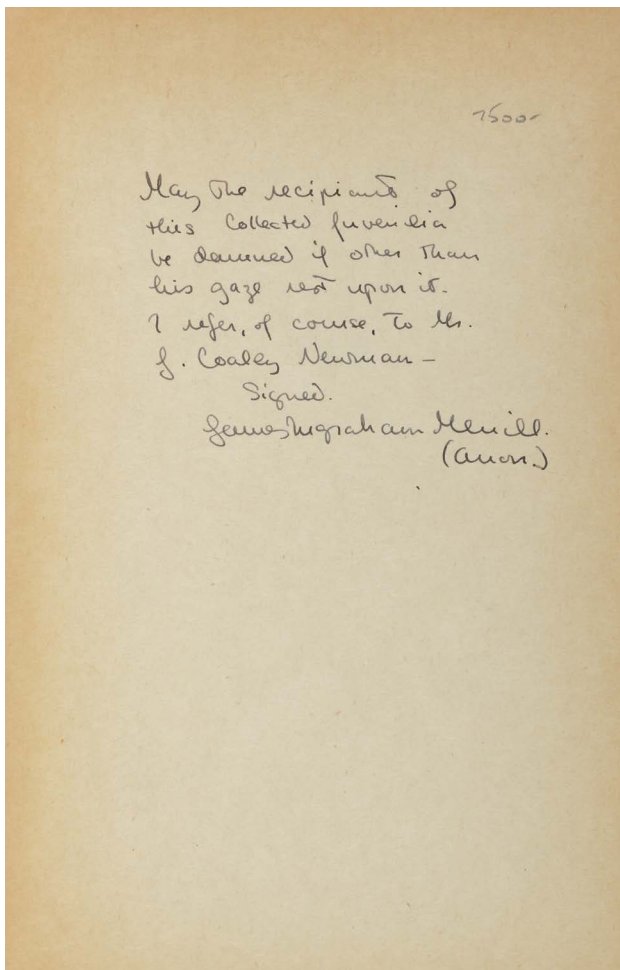 7500-
May the recipients of
this Collected Juvenilia
be damned if other than
his gaze rest upon it.
I refer, of course, to Mr.
J. Coaley Newman –
Signed.
James Ingraham Merrill.
(Anon.)